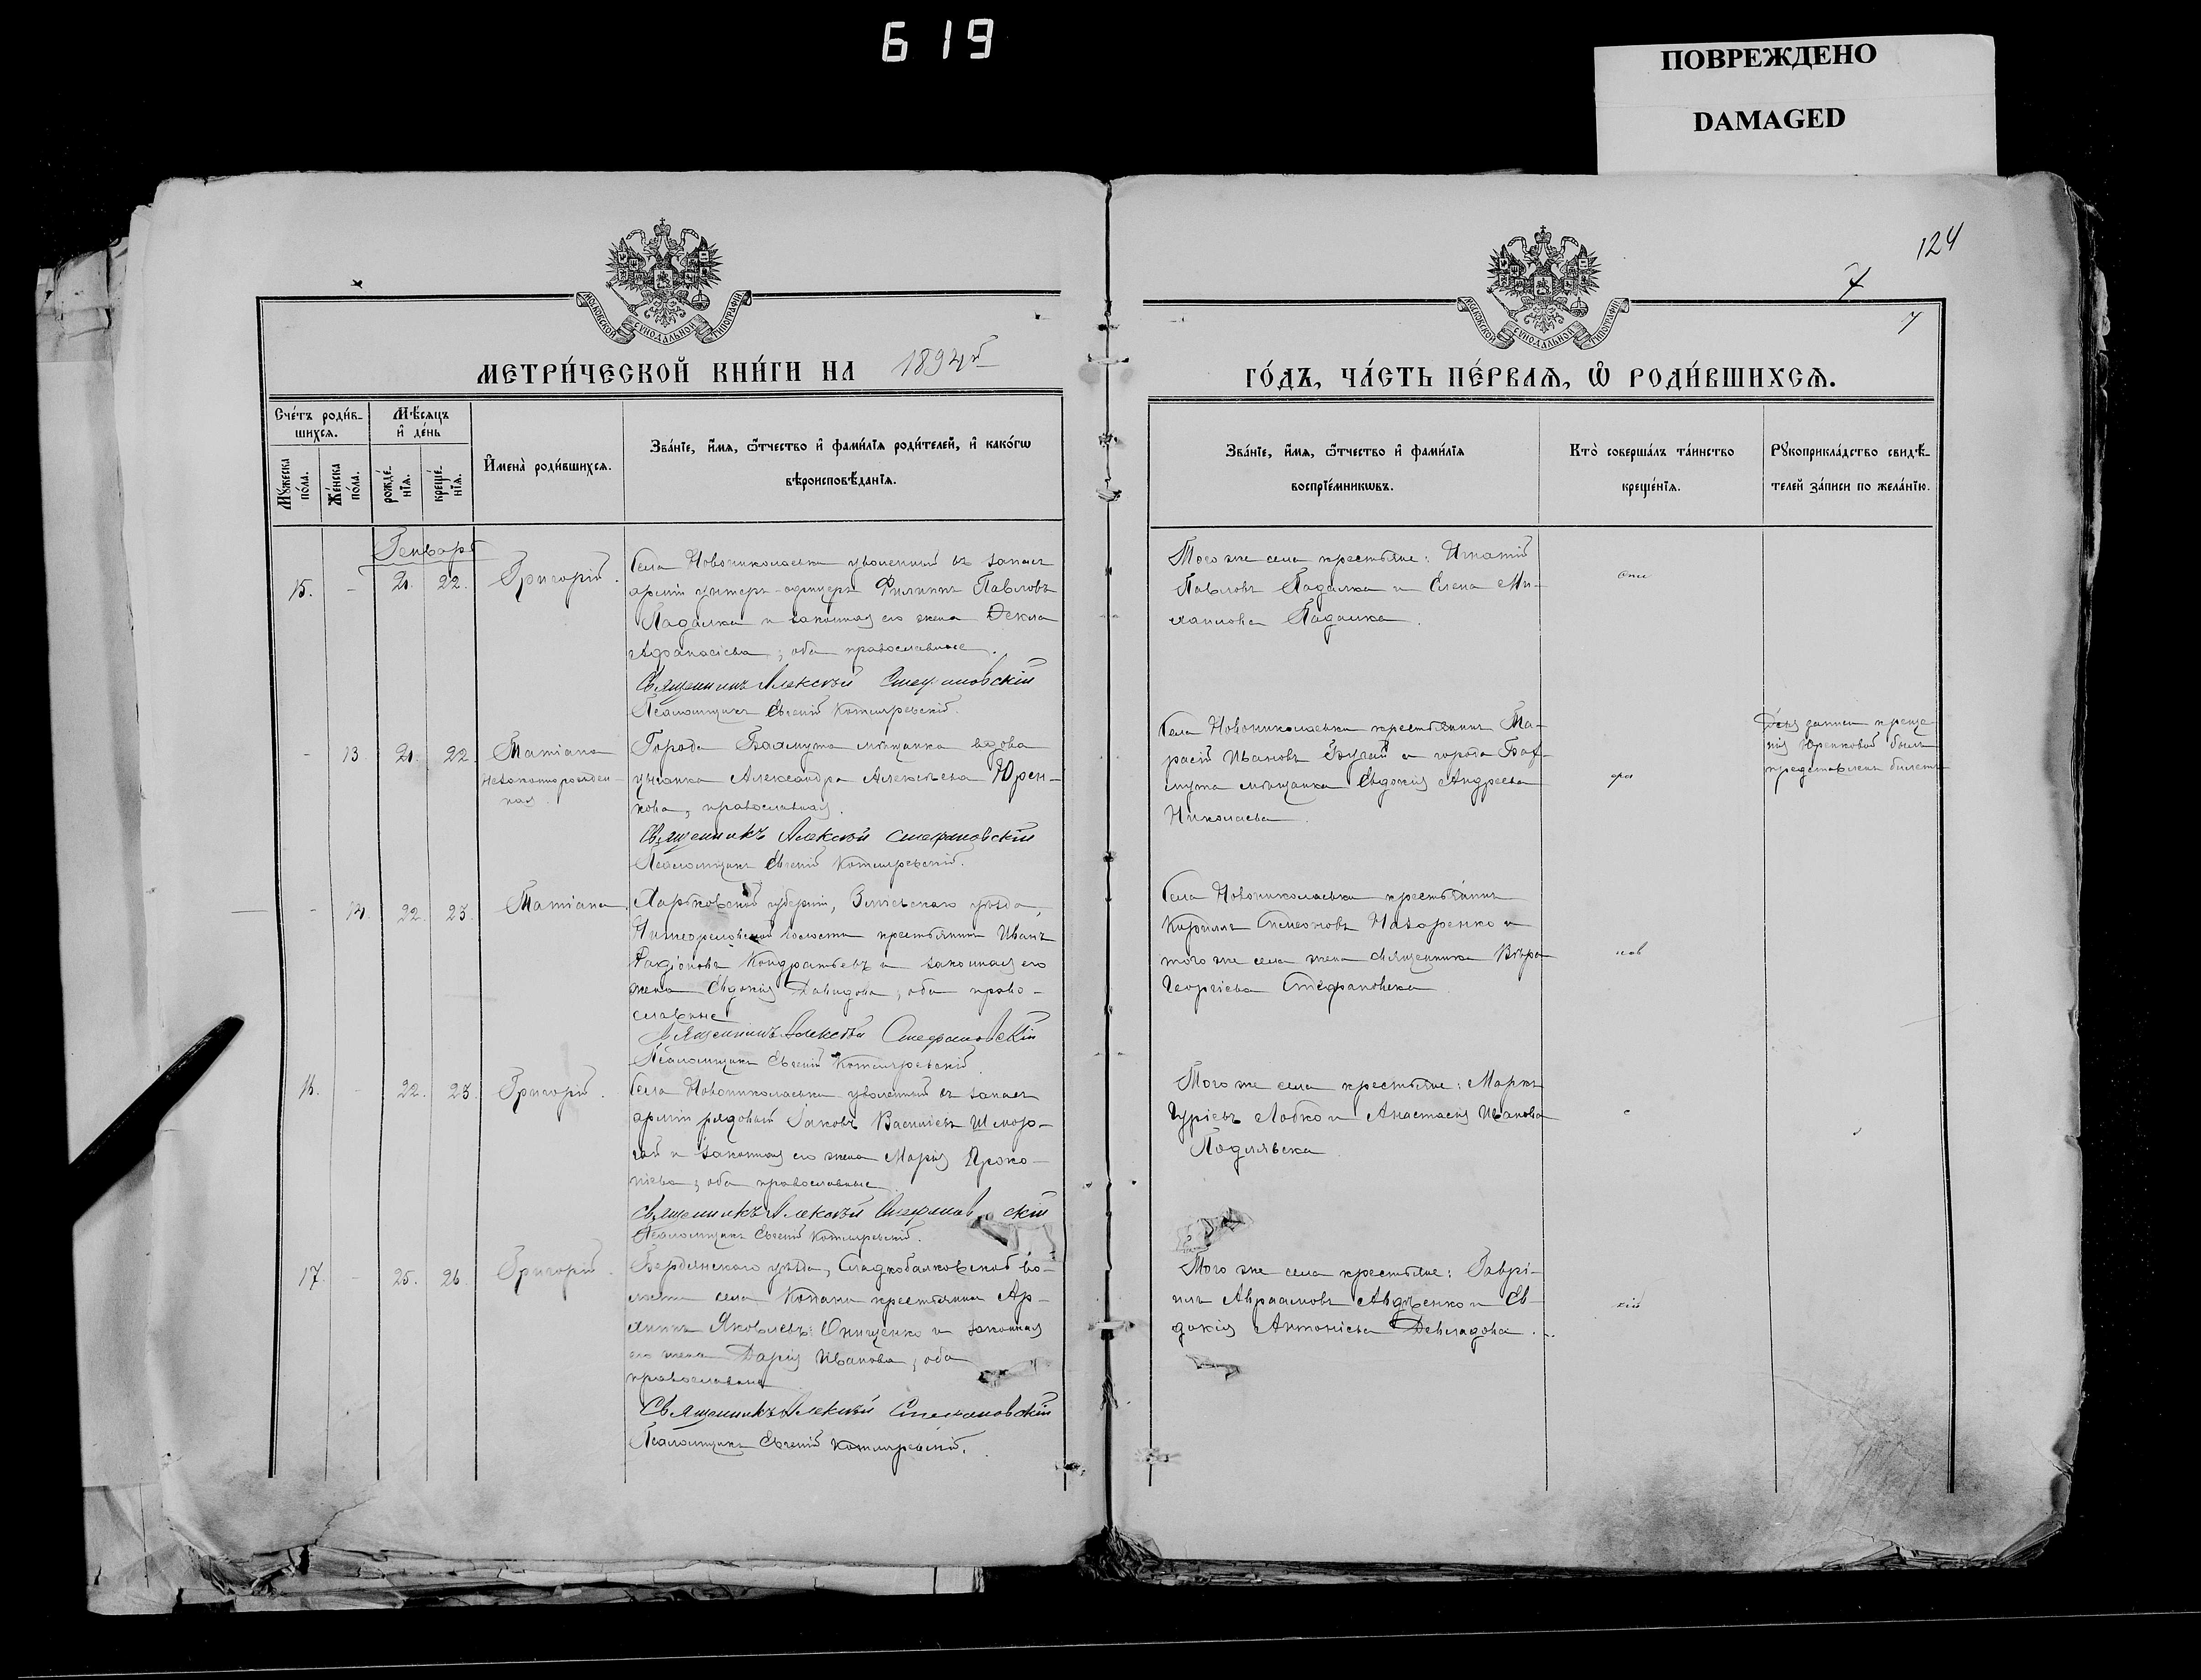 619
ПОВРЕЖДЕНО
DAMAGED
124
7
7
МОСКОВСКОЙ СУНОДАЛЬНОЙ ТИПОГРАФІИ
МОСКОВСКОЙ СУНОДАЛЬНОЙ ТИПОГРАФІИ
МЕТРИ́ЧЕСКОЙ КНИ́ГИ НА 1894й
ГО́ДЪ, ЧА́СТЬ ПЕ́РВАѦ, Ѽ РОДИ́ВШИХСѦ.
Сче́тъ роди́в-
шихсѧ.
Мꙋ́жеска
по́ла.
Же́нска
по́ла.
Мѣ́сѧцъ
и҆ де́нь
рожде́-
нїѧ.
креще́-
нїѧ.
И҆мена̀ роди́вшихсѧ.
Зва́нїе, и҆́мѧ, ѻ҆́тчество и҆ фами́лїѧ роди́телей, и҆ како́гѡ
вѣроисповѣ́данїѧ.
Зва́нїе, и҆́мѧ, ѻ҆́тчество и҆ фами́лїѧ
воспрїе́мникѡвъ.
Кто̀ соверша́лъ та́инство
креще́нїѧ.
Рꙋкоприкла́дство свидѣ́-
телей за́писи по жела́нїю.
Генварь
15. - 21. 22. Григорій.
Села Новониколаевки уволенный въ запасъ
арміи унтеръ-офицеръ Филиппъ Павловъ
Падалка и законная его жена Ѳекла
Афанасіева; оба православные.
Священникъ Алексѣй Стефановскій
Псаломщикъ Евгеній Котляревскій.
Того же села крестьяне: Игнатій
Павловъ Падалка и Елена Ми-
хаилова Падалка.
- 13. 21. 22. Татіана
незаконнорожден-
ная.
Города Бахмута мѣщанка вдова
Александра Алексѣева Юрен-
кова, православная.
Священникъ Алексѣй Стефановскій
Псаломщикъ Евгеній Котляревскій.
Села Новониколаевки крестьянинъ Та-
расій Ивановъ и города Бах-
мута мѣщанка Евдокія Андреева
Николаева.
Для записи креще-
нія Юренковой былъ
представленъ билетъ
- 14. 22. 23. Татіана.
Харьковской губерніи, Зміевскаго уѣзда,
Нижнеорельской волости крестьянинъ Иванъ
Родіоновъ Кондратьевъ и законная его
жена Евдокія Давидова; оба право-
славные
Священникъ Алексѣй Стефановскій
Псаломщикъ Евгеній Котляревскій
Села Новониколаевки крестьянинъ
Кириллъ Симеоновъ Назаренко и
того же села жена священника Вѣра
Георгіева Стефановска
16. - 22. 23. Григорій.
Села Новониколаевки уволенный въ запасъ
арміи рядовый Іаковъ Василіевъ Шмор-
гай и законная его жена Марія Проко-
піева; оба православные
Священникъ Алексѣй Стефановскій
Псаломщикъ Евгеній Котляревскій.
Того же села крестьяне: Маркъ
Гуріевъ Лобко и Анастасія Иванова
17. - 25. 26. Григорій.
Бердянскаго уѣзда, Сладкобалковской во-
лости села Копани крестьянинъ Ар-
Яковлевъ Онищенко и законная
его жена Дарія Иванова; оба
православные
Священникъ Алексѣй Стефановскій
Псаломщикъ Евгеній Котляревскій.
Того же села крестьяне: Гаврі-
илъ Авраамовъ Авдѣенко и Ев-
докія Антоніева Девладова.
кій